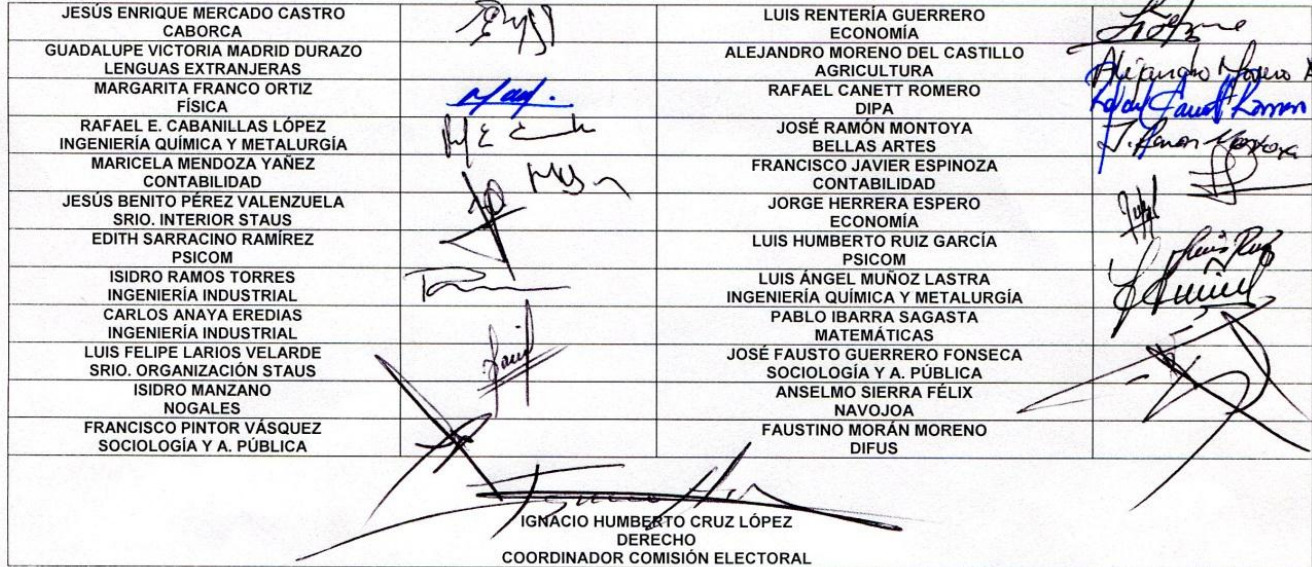 JESÚS ENRIQUE MERCADO CASTRO
CABORCA
LUIS RENTERÍA GUERRERO
ECONOMÍA
GUADALUPE VICTORIA MADRID DURAZO
LENGUAS EXTRANJERAS
ALEJANDRO MORENO DEL CASTILLO
AGRICULTURA
Alejandro Moreno
MARGARITA FRANCO ORTIZ
FÍSICA
RAFAEL CANETT ROMERO
DIPA
Rafael Canett Romero
RAFAEL E. CABANILLAS LÓPEZ
INGENIERÍA QUÍMICA Y METALURGÍA
JOSÉ RAMÓN MONTOYA
BELLAS ARTES
J. Ramon Montoya
MARICELA MENDOZA YAÑEZ
CONTABILIDAD
FRANCISCO JAVIER ESPINOZA
CONTABILIDAD
JESÚS BENITO PÉREZ VALENZUELA
SRIO. INTERIOR STAUS
JORGE HERRERA ESPERO
ECONOMÍA
EDITH SARRACINO RAMÍREZ
PSICOM
LUIS HUMBERTO RUIZ GARCÍA
PSICOM
Luis Ruiz
ISIDRO RAMOS TORRES
INGENIERÍA INDUSTRIAL
LUIS ÁNGEL MUÑOZ LASTRA
INGENIERÍA QUÍMICA Y METALURGÍA
CARLOS ANAYA EREDIAS
INGENIERÍA INDUSTRIAL
PABLO IBARRA SAGASTA
MATEMÁTICAS
LUIS FELIPE LARIOS VELARDE
SRIO. ORGANIZACIÓN STAUS
JOSÉ FAUSTO GUERRERO FONSECA
SOCIOLOGÍA Y A. PÚBLICA
ISIDRO MANZANO
NOGALES
ANSELMO SIERRA FÉLIX
NAVOJOA
FRANCISCO PINTOR VÁSQUEZ
SOCIOLOGÍA Y A. PÚBLICA
FAUSTINO MORÁN MORENO
DIFUS
IGNACIO HUMBERTO CRUZ LÓPEZ
DERECHO
COORDINADOR COMISIÓN ELECTORAL